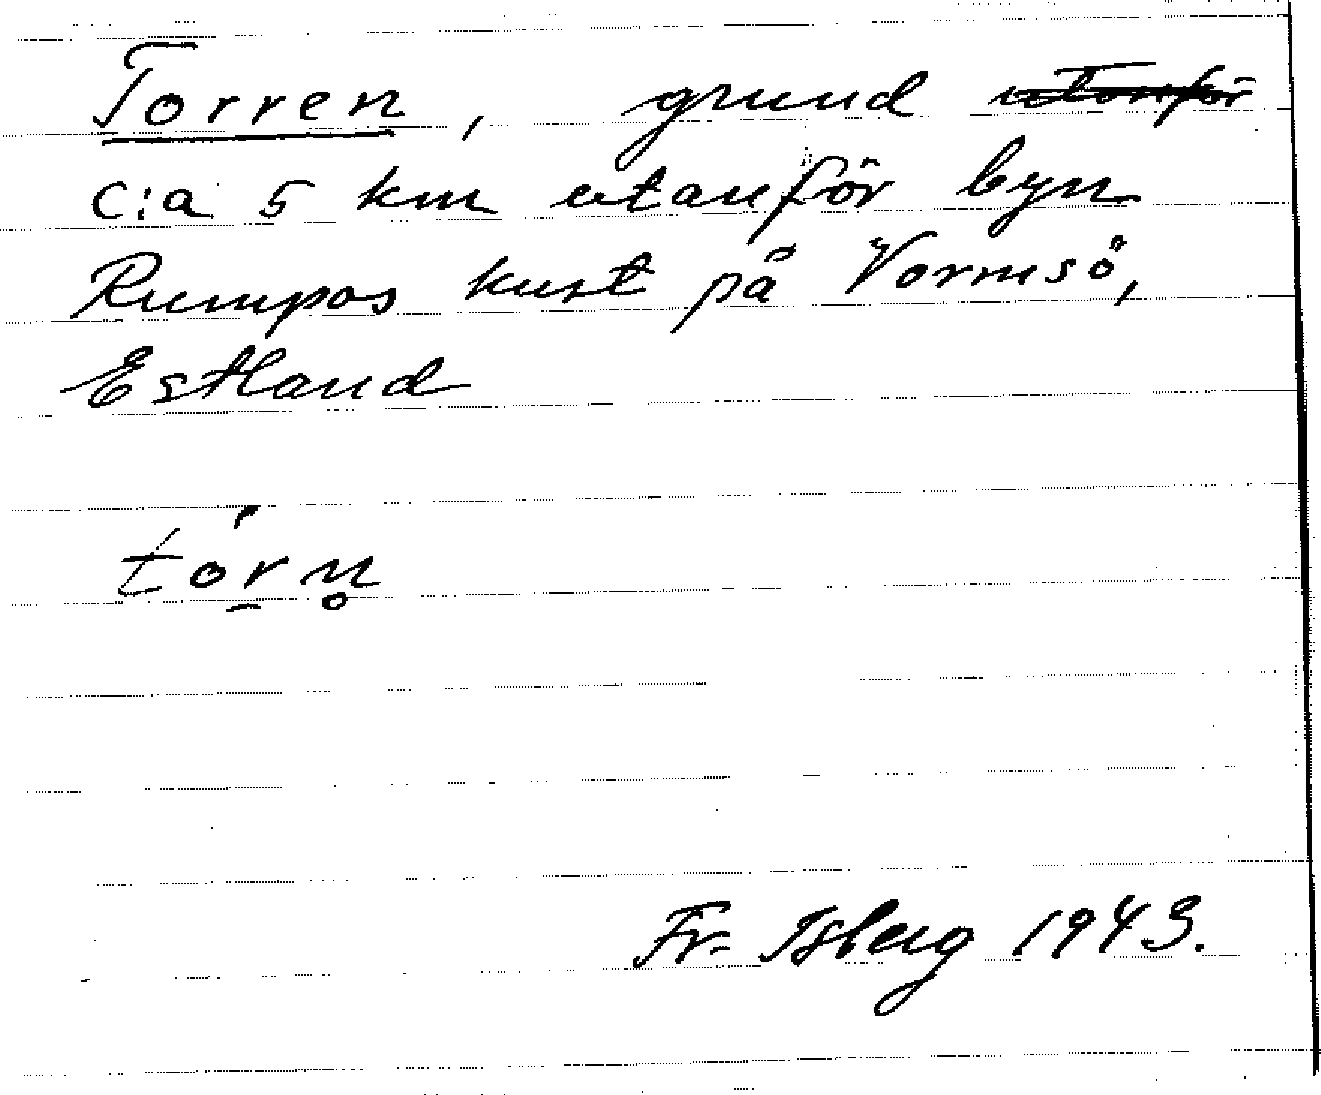 Torren, grund utanför
c:a 5 km utanför byn
Rumpos kust på Vormsö,
Estland
tór̠n̥
Fr. Isberg 1943.